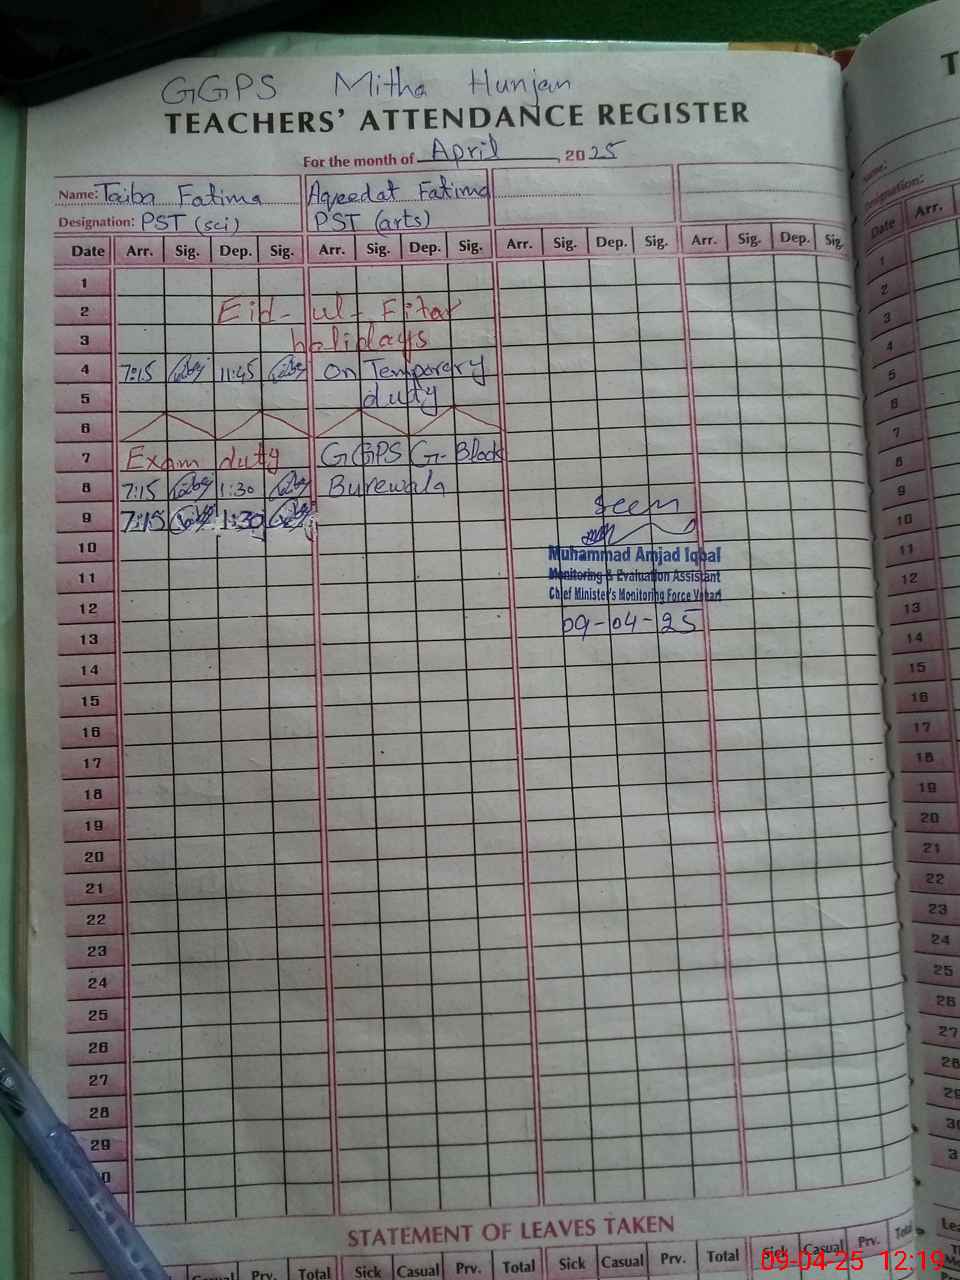 GGPS Mitha Hunjan
TEACHERS' ATTENDANCE REGISTER
For the month of April, 2025
Name: Taiba Fatima Aqeedat Fatima
Designation: PST (sci) PST (arts)
Date Arr. Sig. Dep. Sig. Arr. Sig. Dep. Sig. Arr. Sig. Dep. Sig. Arr. Sig. Dep. Sig.
1
2 Eid-ul-Fitar
3 holidays
4 7:15 11:45 On Temporary
5 duty
6
7 Exam duty GGPS G-Block
8 7:15 1:30 Burewala
9 7:15 1:30
Seen
10
Muhammad Amjad Iqbal
11 Monitoring & Evaluation Assistant
Chief Minister's Monitoring Force Vehari
12
09-04-25
13
14
15
16
17
18
19
20
21
22
23
24
25
26
27
28
29
STATEMENT OF LEAVES TAKEN
Casual Prv. Total Sick Casual Prv. Total Sick Casual Prv. Total Sick Casual Prv. Total
T
Name:
Designation:
Date Arr.
1
2
3
4
5
6
7
8
9
10
11
12
13
14
15
16
17
18
19
20
21
22
23
24
25
26
27
28
29
09-04-25 12:19